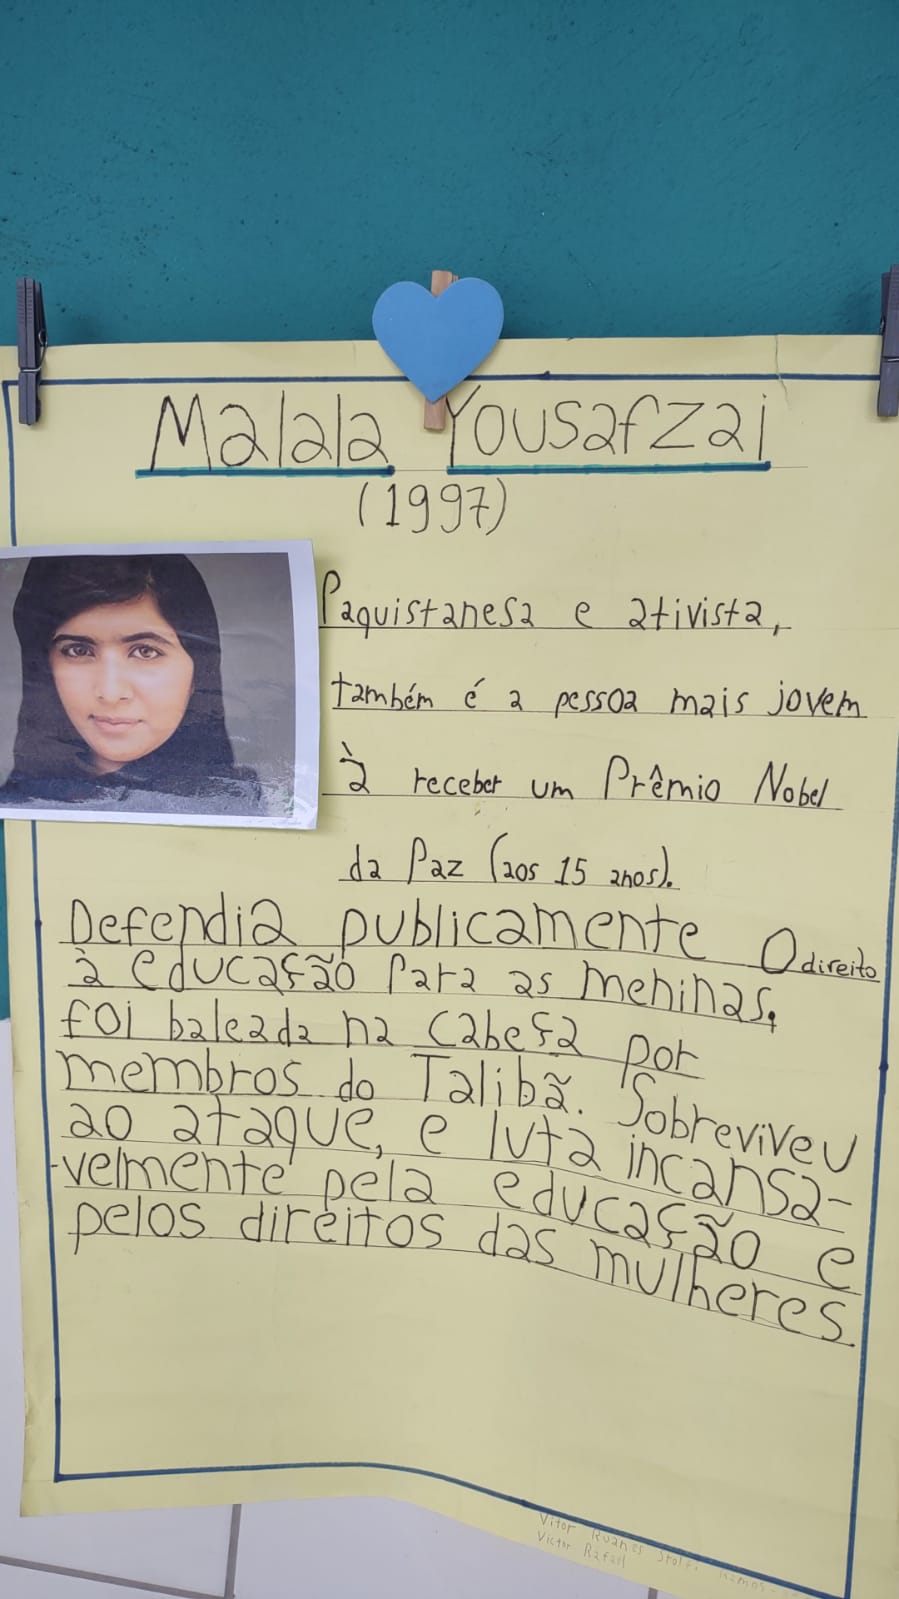 Malala Yousafzai
(1997)
Paquistanesa e ativista,
também é a pessoa mais jovem
à receber um Prêmio Nobel
da Paz (aos 15 anos).
Defendia publicamente O direito
à educação para as meninas,
foi baleada na cabeça por
membros do Talibã. Sobreviveu
ao ataque, e luta incansa-
-velmente pela educação e
pelos direitos das mulheres.
Vitor Ruanes Stolf Ramos
Victor Rafael